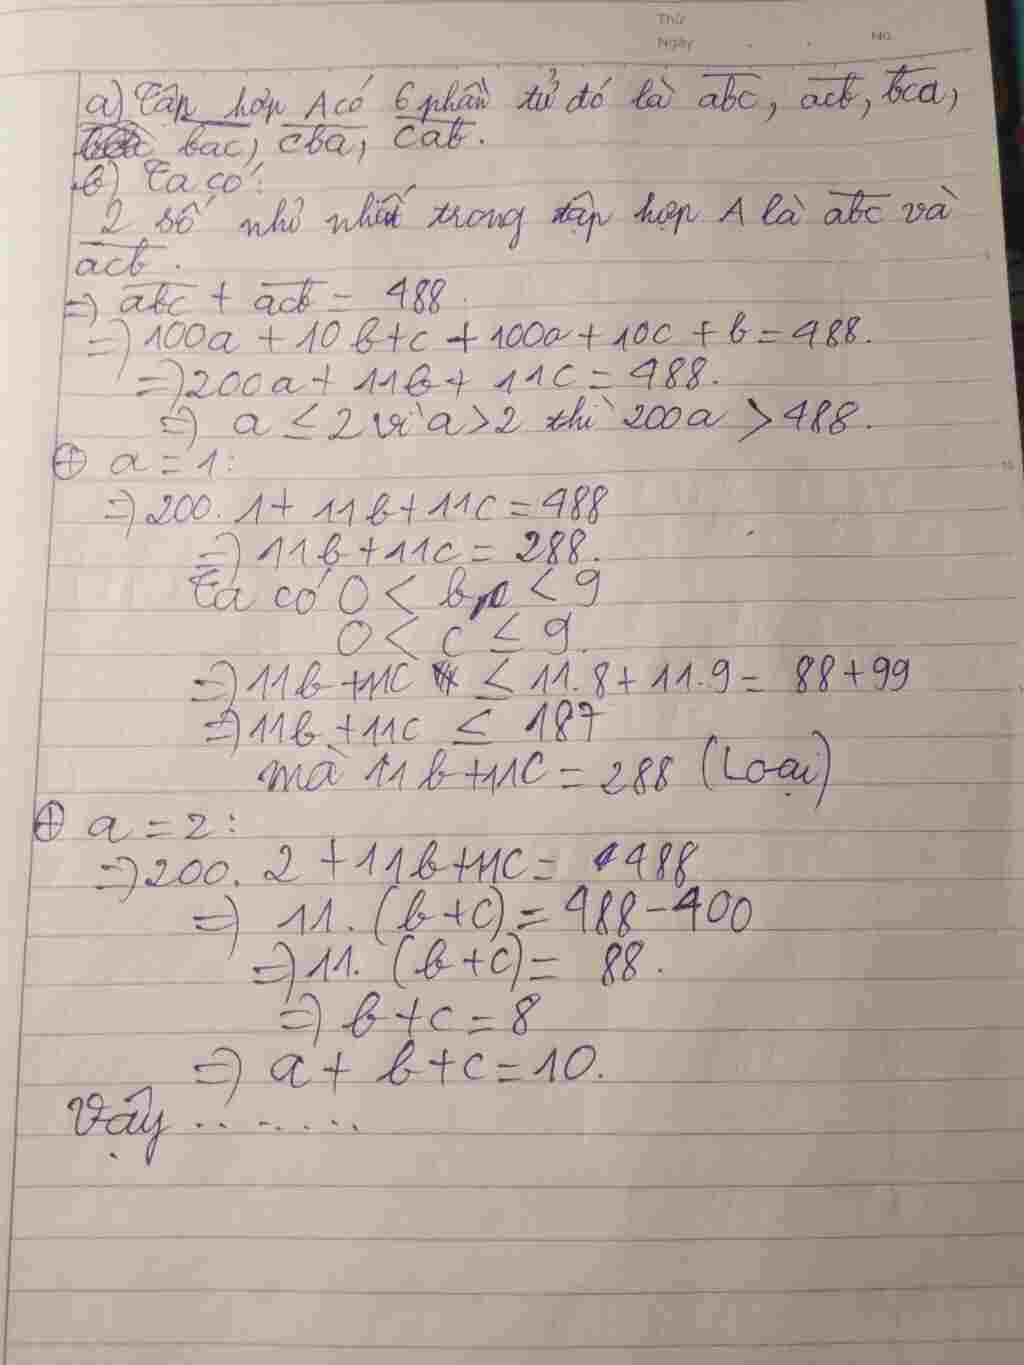 Thứ
Ngày . . No.
a) Tập hợp A có 6 phần tử đó là abc, acb, bca,
bac, cba, cab.
b) Ta có:
2 số nhỏ nhất trong tập hợp A là abc và
acb.
=) abc + acb = 488
=) 100a + 10b+c + 100a + 10c + b = 488.
=) 200a + 11b + 11c = 488.
=) a ≤ 2 vì a > 2 thì 200a > 488.
⊕ a = 1:
=) 200. 1 + 11b + 11c = 488
=) 11b + 11c = 288.
Ta có 0 < b < 9
0 < c ≤ 9.
=) 11b + 11c ≤ 11.8 + 11.9 = 88 + 99
=) 11b + 11c ≤ 187
mà 11b + 11c = 288 (Loại)
⊕ a = 2:
=) 200. 2 + 11b + 11c = 488
=) 11. (b + c) = 488 - 400
=) 11. (b + c) = 88.
=) b + c = 8
=) a + b + c = 10.
Vậy .......